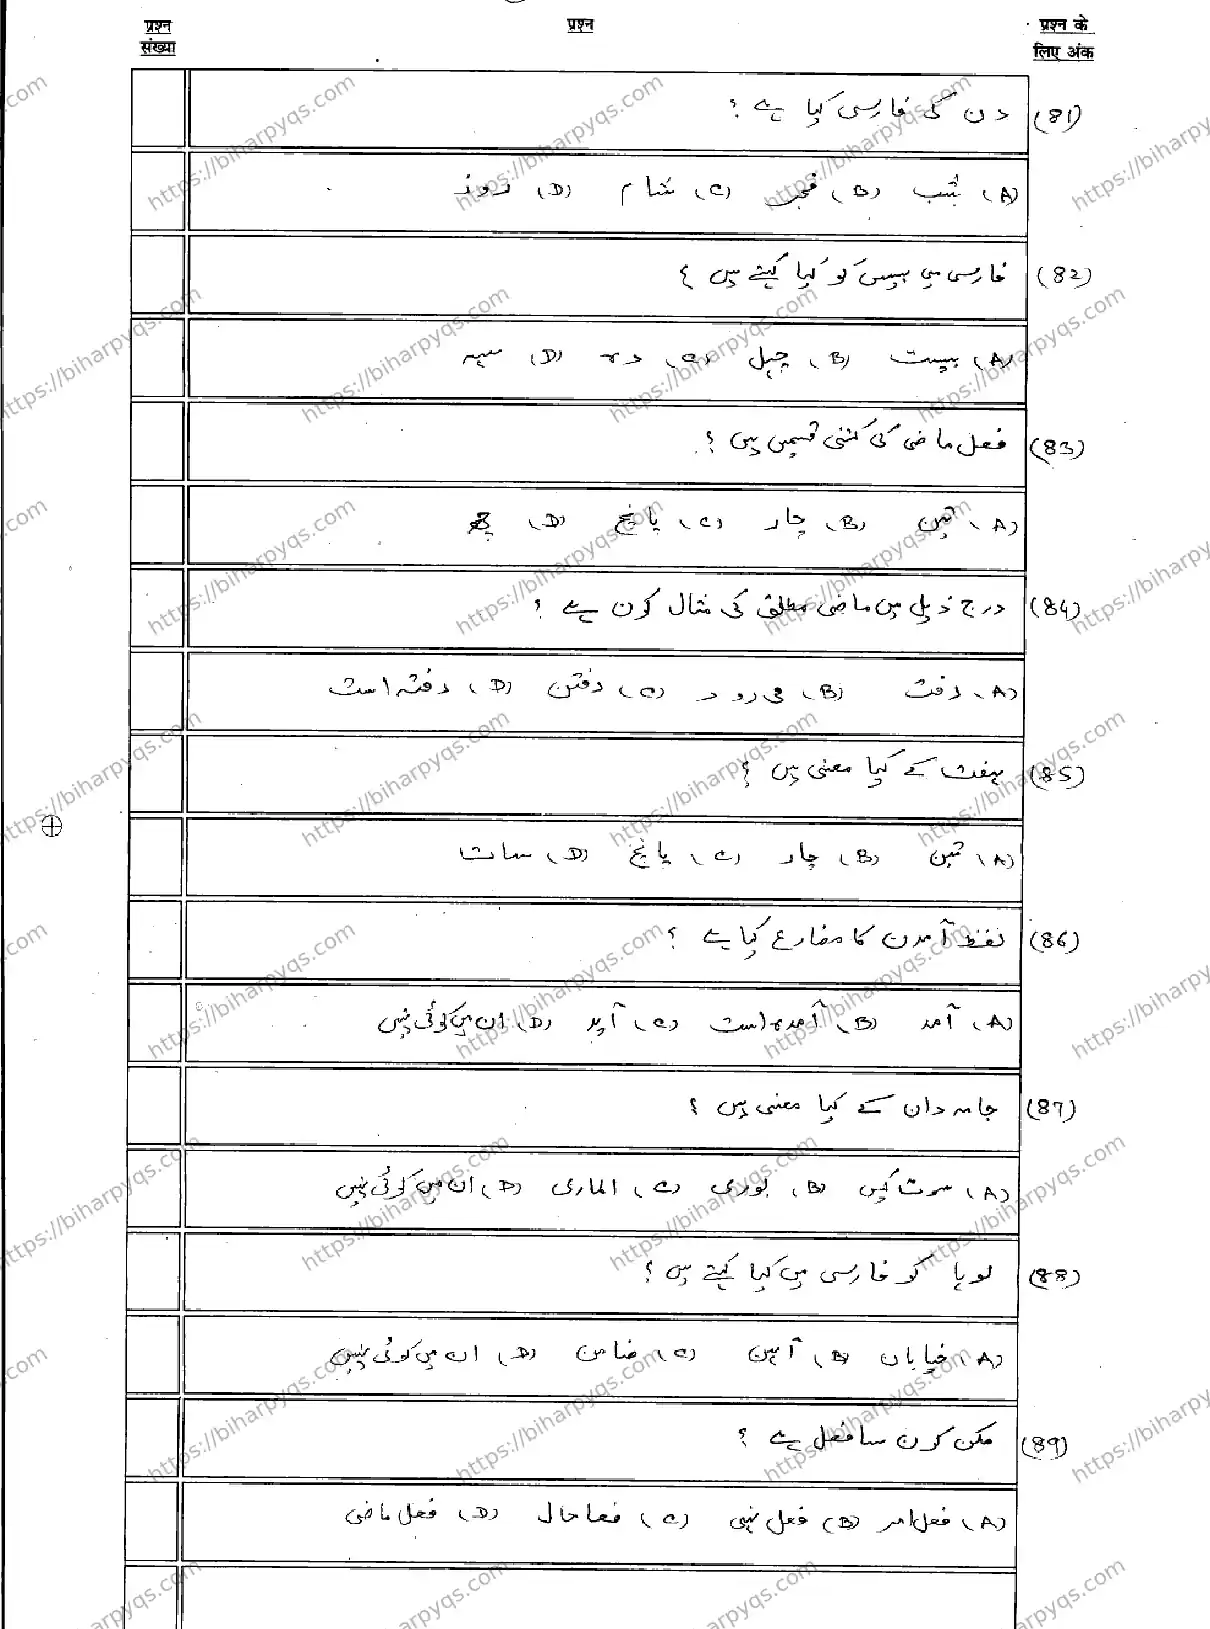 प्रश्न संख्या
प्रश्न
प्रश्न के लिए अंक
(81) دن کی فارسی کیا ہے ؟
(A) شب (B) فجر (C) شام (D) روز
(82) فارسی میں بیس کو کیا کہتے ہیں ؟
(A) بیست (B) چہل (C) دہ (D) سہ
(83) فعل ماضی کی کتنی قسمیں ہیں ؟
(A) تین (B) چار (C) پانچ (D) چھ
(84) درج ذیل میں ماضی مطلق کی مثال کون ہے ؟
(A) رفت (B) می رود (C) رفتن (D) رفتہ است
(85) ہفت کے کیا معنی ہیں ؟
(A) تین (B) چار (C) پانچ (D) سات
(86) لفظ آمدن کا مضارع کیا ہے ؟
(A) آمد (B) آمدہ است (C) آید (D) ان میں کوئی نہیں
(87) جامہ دان کے کیا معنی ہیں ؟
(A) سوٹ کیس (B) بوری (C) الماری (D) ان میں کوئی نہیں
(88) لوہا کو فارسی میں کیا کہتے ہیں ؟
(A) خیابان (B) آہن (C) ضامن (D) ان میں کوئی نہیں
(89) مکن کون سا فعل ہے ؟
(A) فعل امر (B) فعل نہی (C) فعل حال (D) فعل ماضی
https://biharpyqs.com